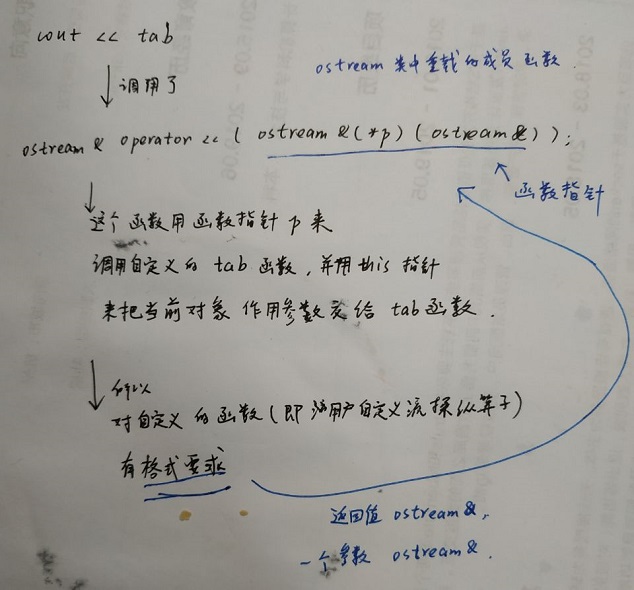 cout << tab
调用了
ostream 类中重载的成员函数
ostream & operator << ( ostream &(*p) (ostream&) );
函数指针
这个函数用函数指针 p 来
调用自定义的 tab 函数，并用 this 指针
来把当前对象 作用参数交给 tab函数.
所以
对自定义的函数(即 用户自定义流操纵算子)
有格式要求
返回值 ostream &,
一个参数 ostream &.